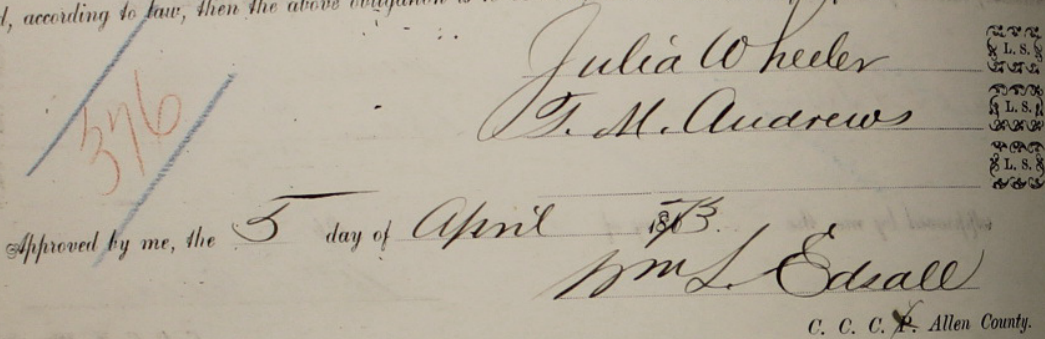 d, according to law, then the above obligation is
Julia Wheeler L. S.
T. M. Andrews L. S.
L. S.
376
Approved by me, the 5 day of April 1873.
Wm L. Edsall
C. C. C. P. Allen County.